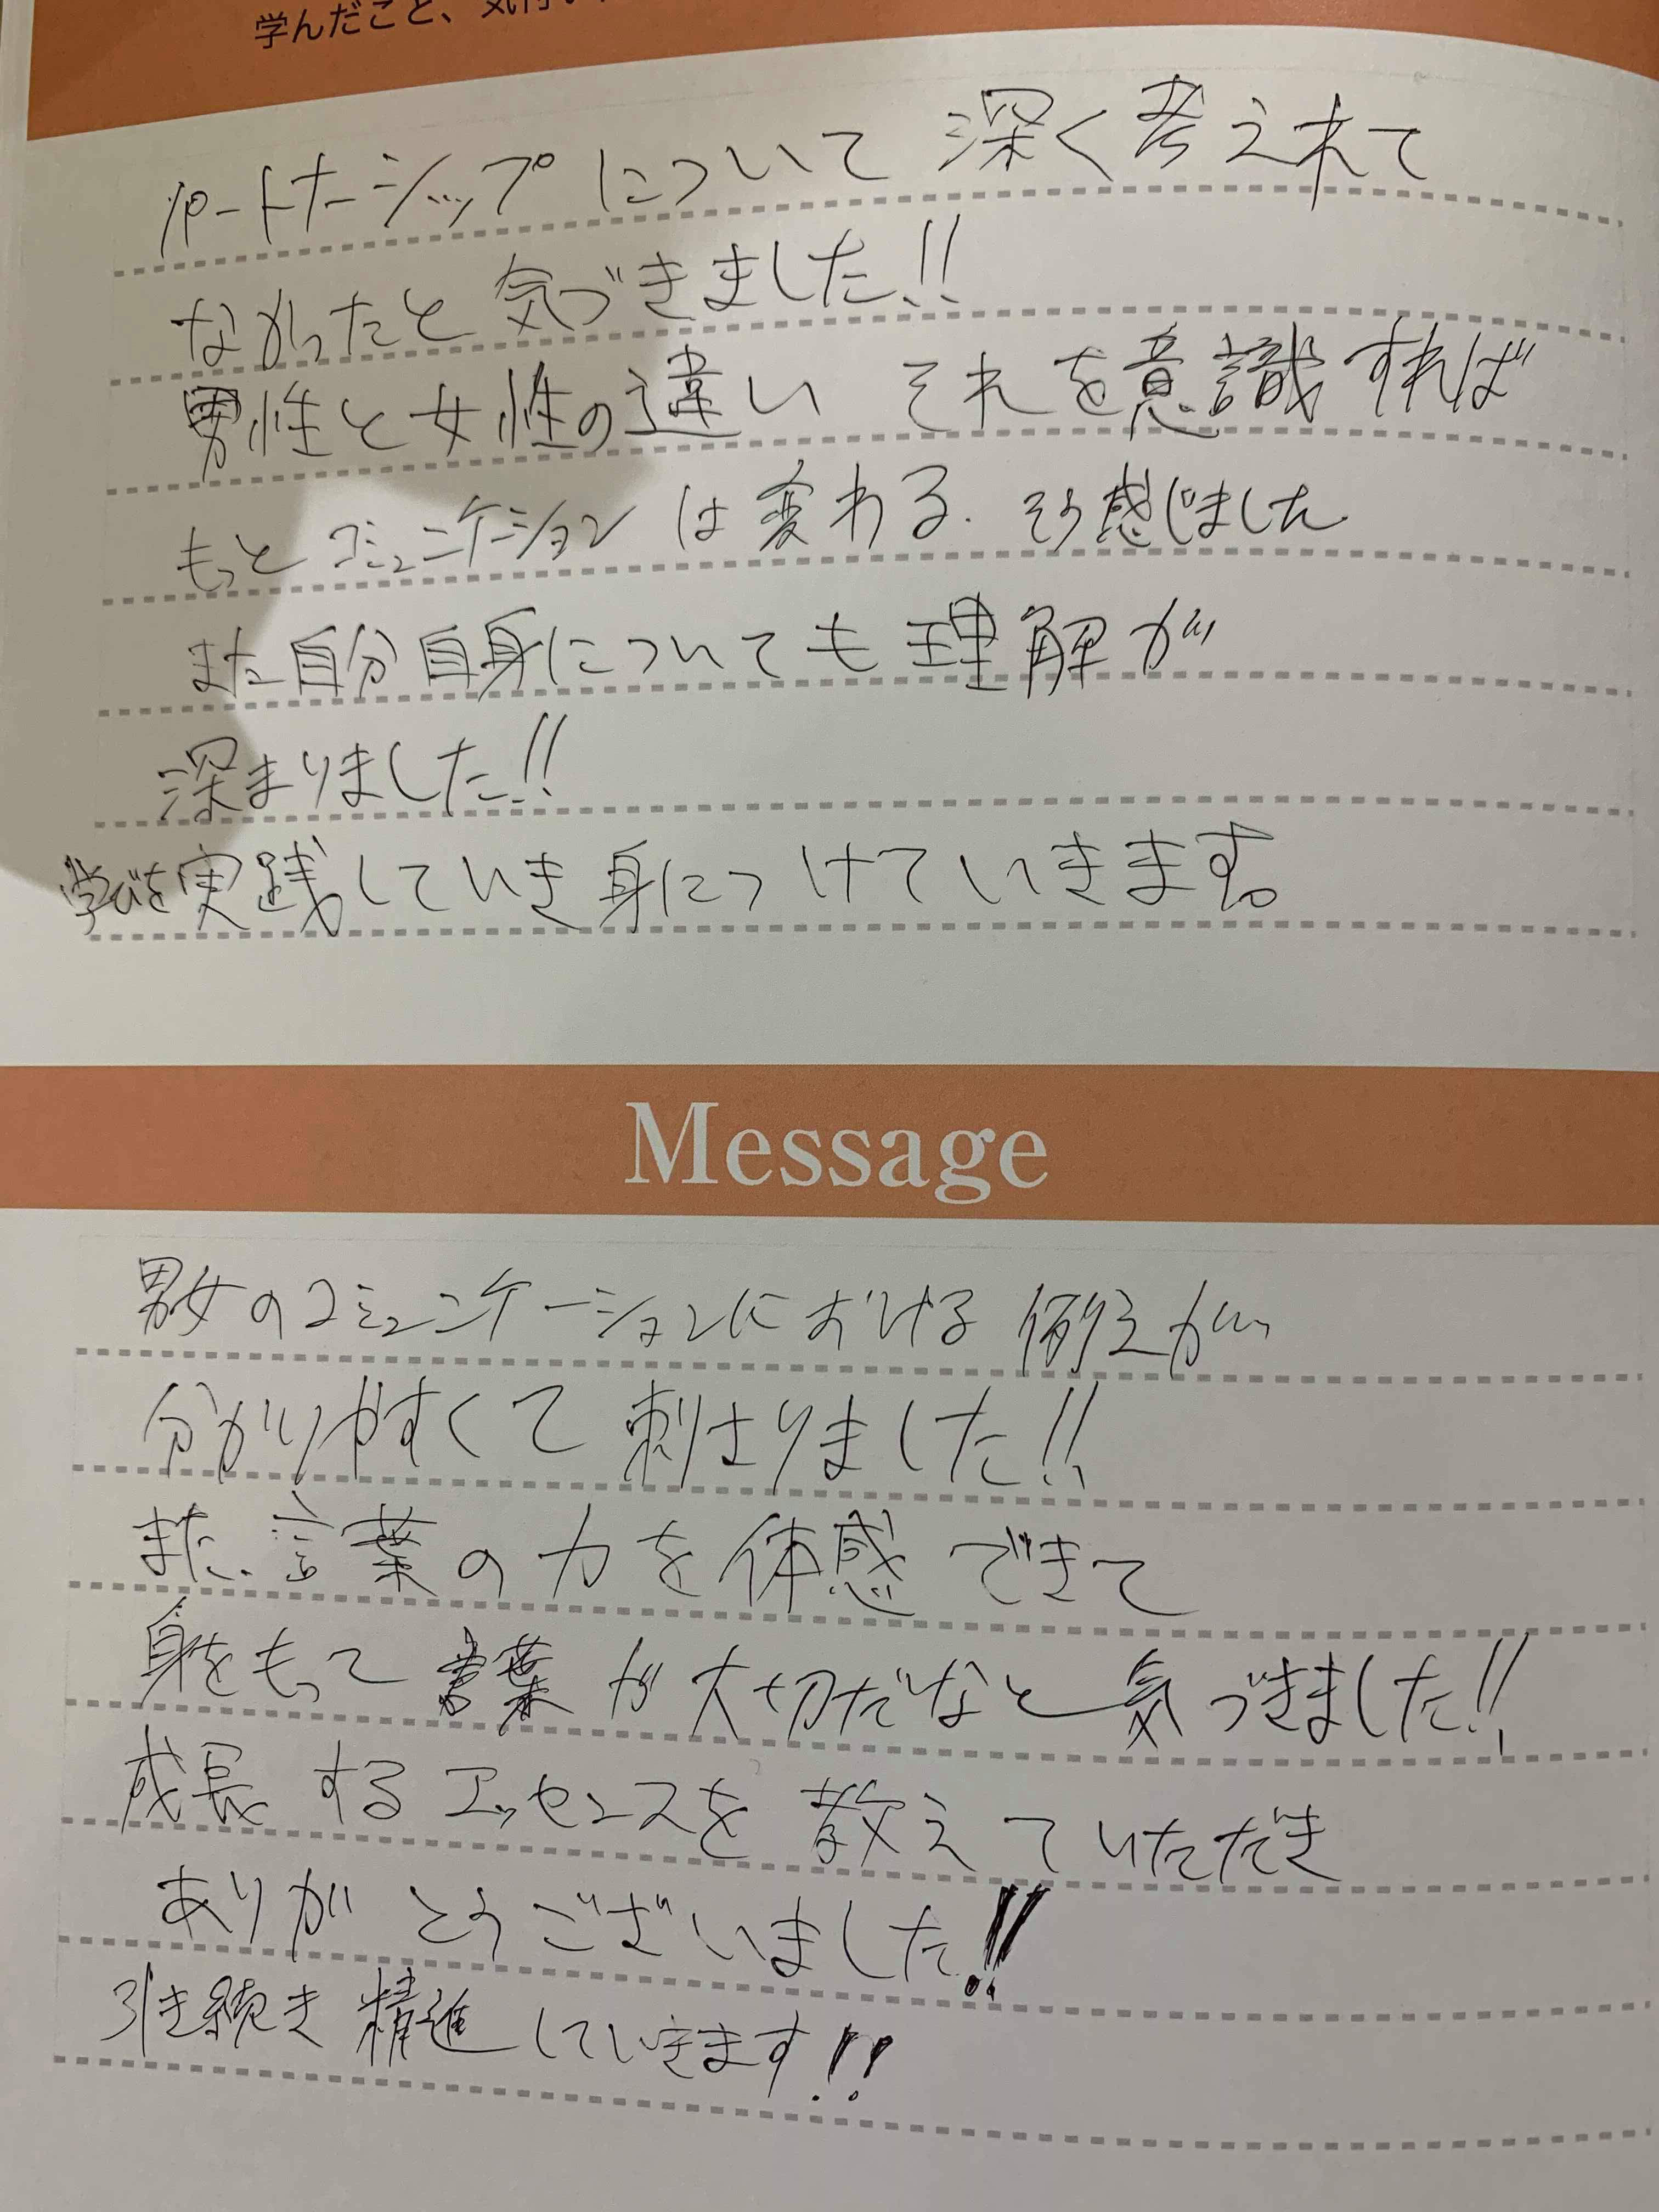 学んだこと、気付い
パートナーシップについて 深く考えれて
なかったと 気づきました!!
男性と女性の違い それを意識すれば
もっと コミュニケーション は変わる. そう感じました
また自分自身についても理解が
深まりました!!
学びを実践していき身につけていきます。
Message
男女のコミュニケーションにおける 例えが
分かりやすくて 刺さりました!!
また、言葉の力を体感できて
身をもって 言葉が大切だなと気づきました!!
成長するエッセンスを教えていただき
ありがとうございました!!
引き続き精進していきます!!